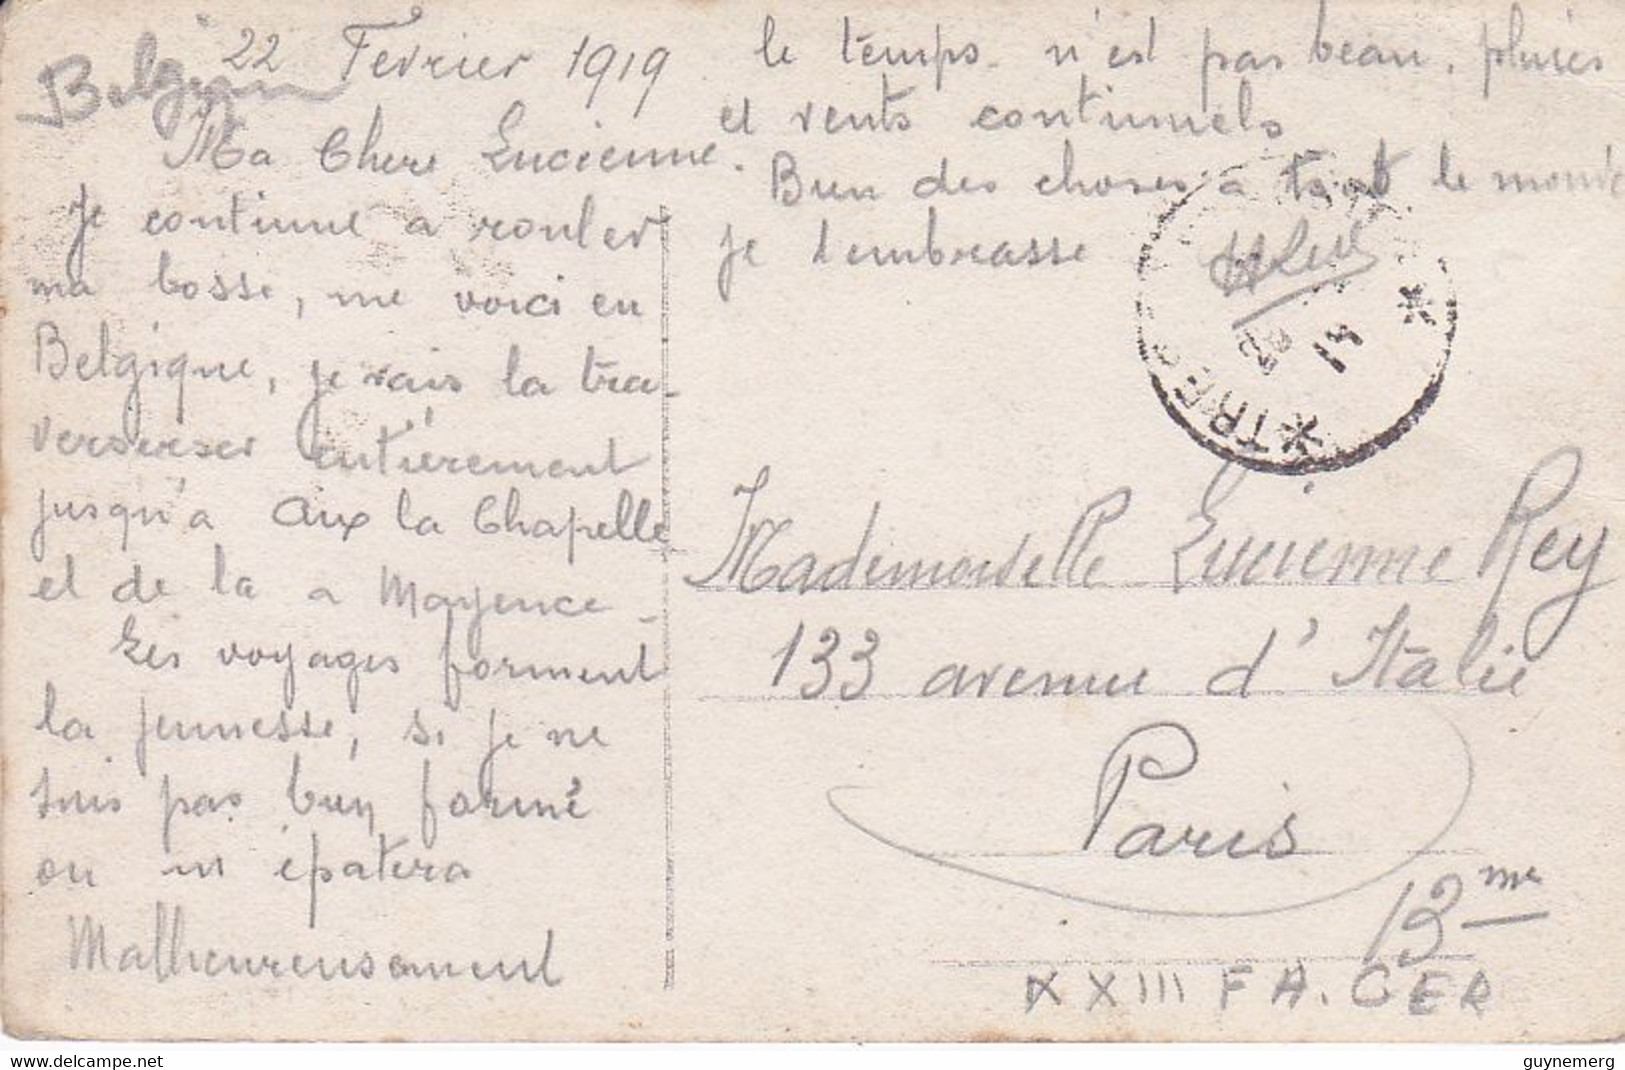 Belgique
22 Fevrier 1919
Ma Chere Lucienne.
Je continue a rouler
ma bosse, me voici en
Belgique, je vais la tra-
verserser entièrement
jusqu'a Aix la Chapelle
et de la a Mayence.
Les voyages forment
la jeunesse, si je ne
suis pas bien formé
on m'epatera
Malheureusement
le temps n'est pas beau, pluies
et vents continuels
Bien des choses a tout le monde
je t'embrasse
*TRES
*
Mademoiselle Lucienne Rey
133 avenue d'Italie
Paris
13me
XXIII F A. GER
www.delcampe.net
guynemerg